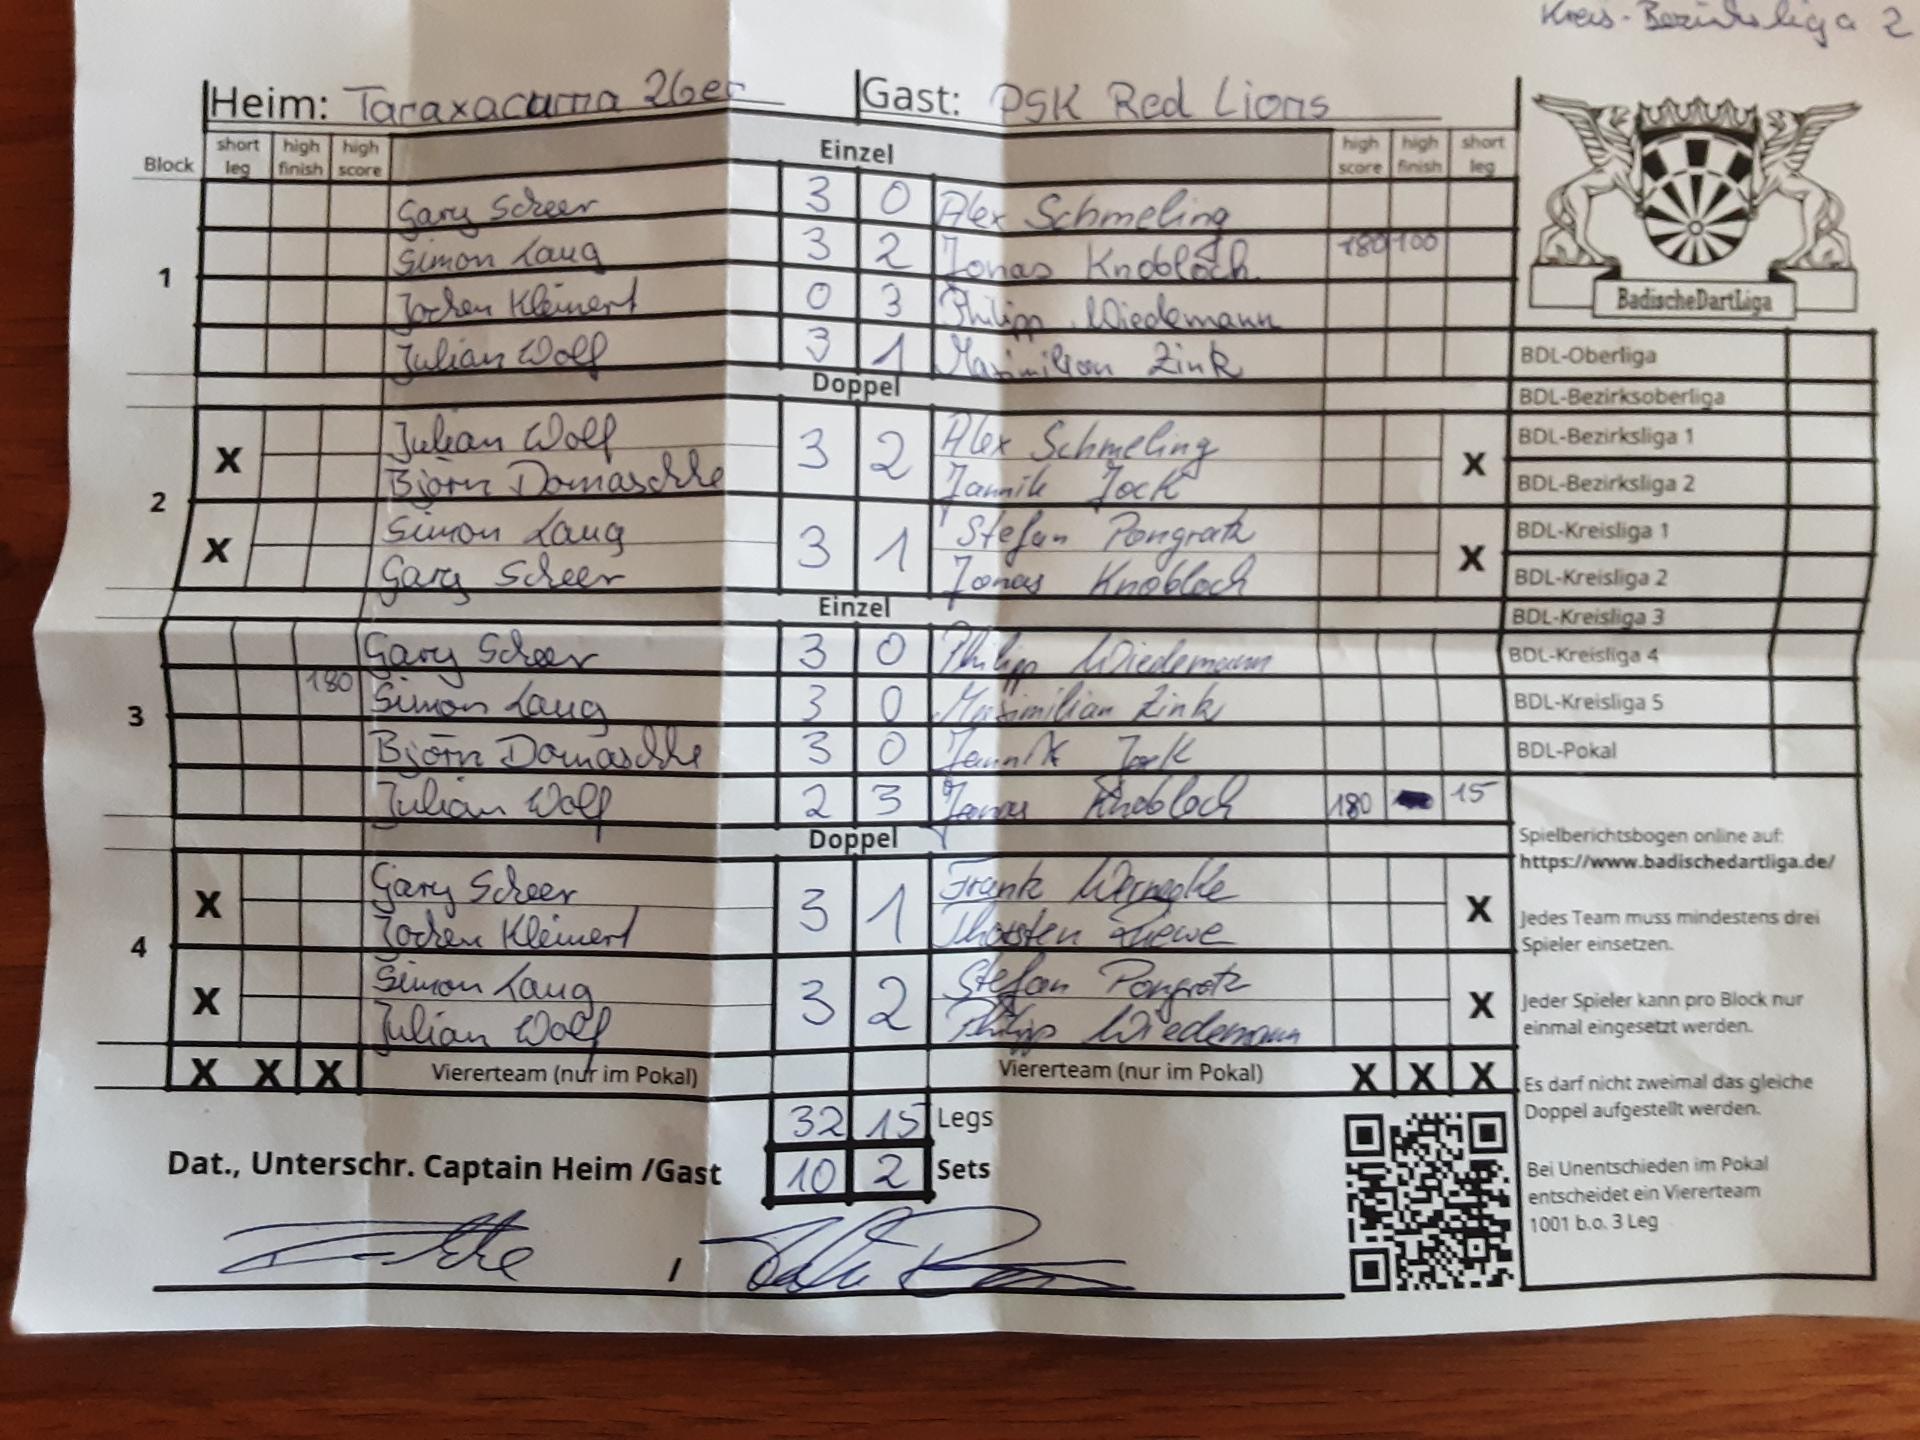 Kreis-Bezirksliga 2
Heim: Taraxacuma 26er Gast: PSK Red Lions
Block short leg high finish high score Einzel high score high finish short leg
1
Gary Scheer 3 0 Alex Schmeling
Simon Laug 3 2 Jonas Knobloch 180 100
Jochen Kleinert 0 3 Philipp Wiedemann
Julian Wolf 3 1 Maximilian Zink
Doppel
2
X Julian Wolf 3 2 Alex Schmeling X
Björn Domaschke Jannik Jock
X Simon Laug 3 1 Stefan Pongratz X
Gary Scheer Jonas Knobloch
Einzel
3
Gary Scheer 3 0 Philipp Wiedemann
180 Simon Laug 3 0 Maximilian Zink
Björn Domaschke 3 0 Jannik Jock
Julian Wolf 2 3 Jonas Knobloch 180 15
Doppel
4
X Gary Scheer 3 1 Frank Wernecke X
Jochen Kleinert Thorsten
X Simon Laug 3 2 Stefan Pongratz X
Julian Wolf Philipp Wiedemann
X X X Viererteam (nur im Pokal) Viererteam (nur im Pokal) X X X
32 15 Legs
10 2 Sets
Dat., Unterschr. Captain Heim /Gast
/
BadischeDartLiga
BDL-Oberliga
BDL-Bezirksoberliga
BDL-Bezirksliga 1
BDL-Bezirksliga 2
BDL-Kreisliga 1
BDL-Kreisliga 2
BDL-Kreisliga 3
BDL-Kreisliga 4
BDL-Kreisliga 5
BDL-Pokal
Spielberichtsbogen online auf:
https://www.badischedartliga.de/
Jedes Team muss mindestens drei
Spieler einsetzen.
Jeder Spieler kann pro Block nur
einmal eingesetzt werden.
Es darf nicht zweimal das gleiche
Doppel aufgestellt werden.
Bei Unentschieden im Pokal
entscheidet ein Viererteam
1001 b.o. 3 Leg